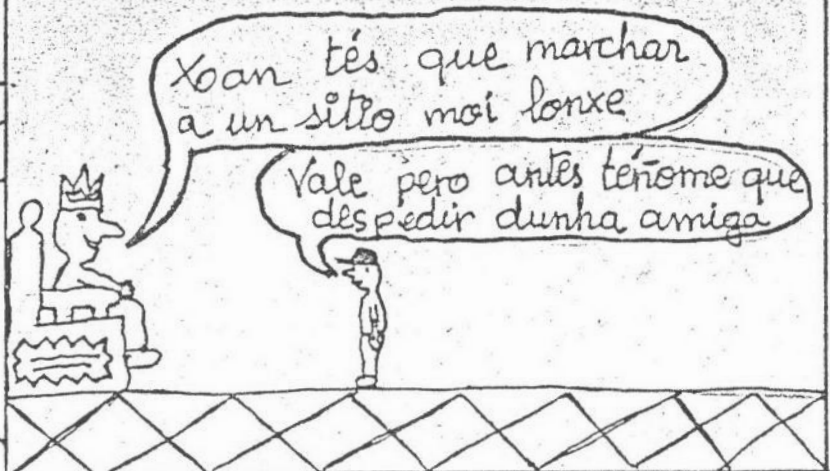 Xoan tés que marchar
a un sitio moi lonxe
Vale pero antes téñome que
despedir dunha amiga